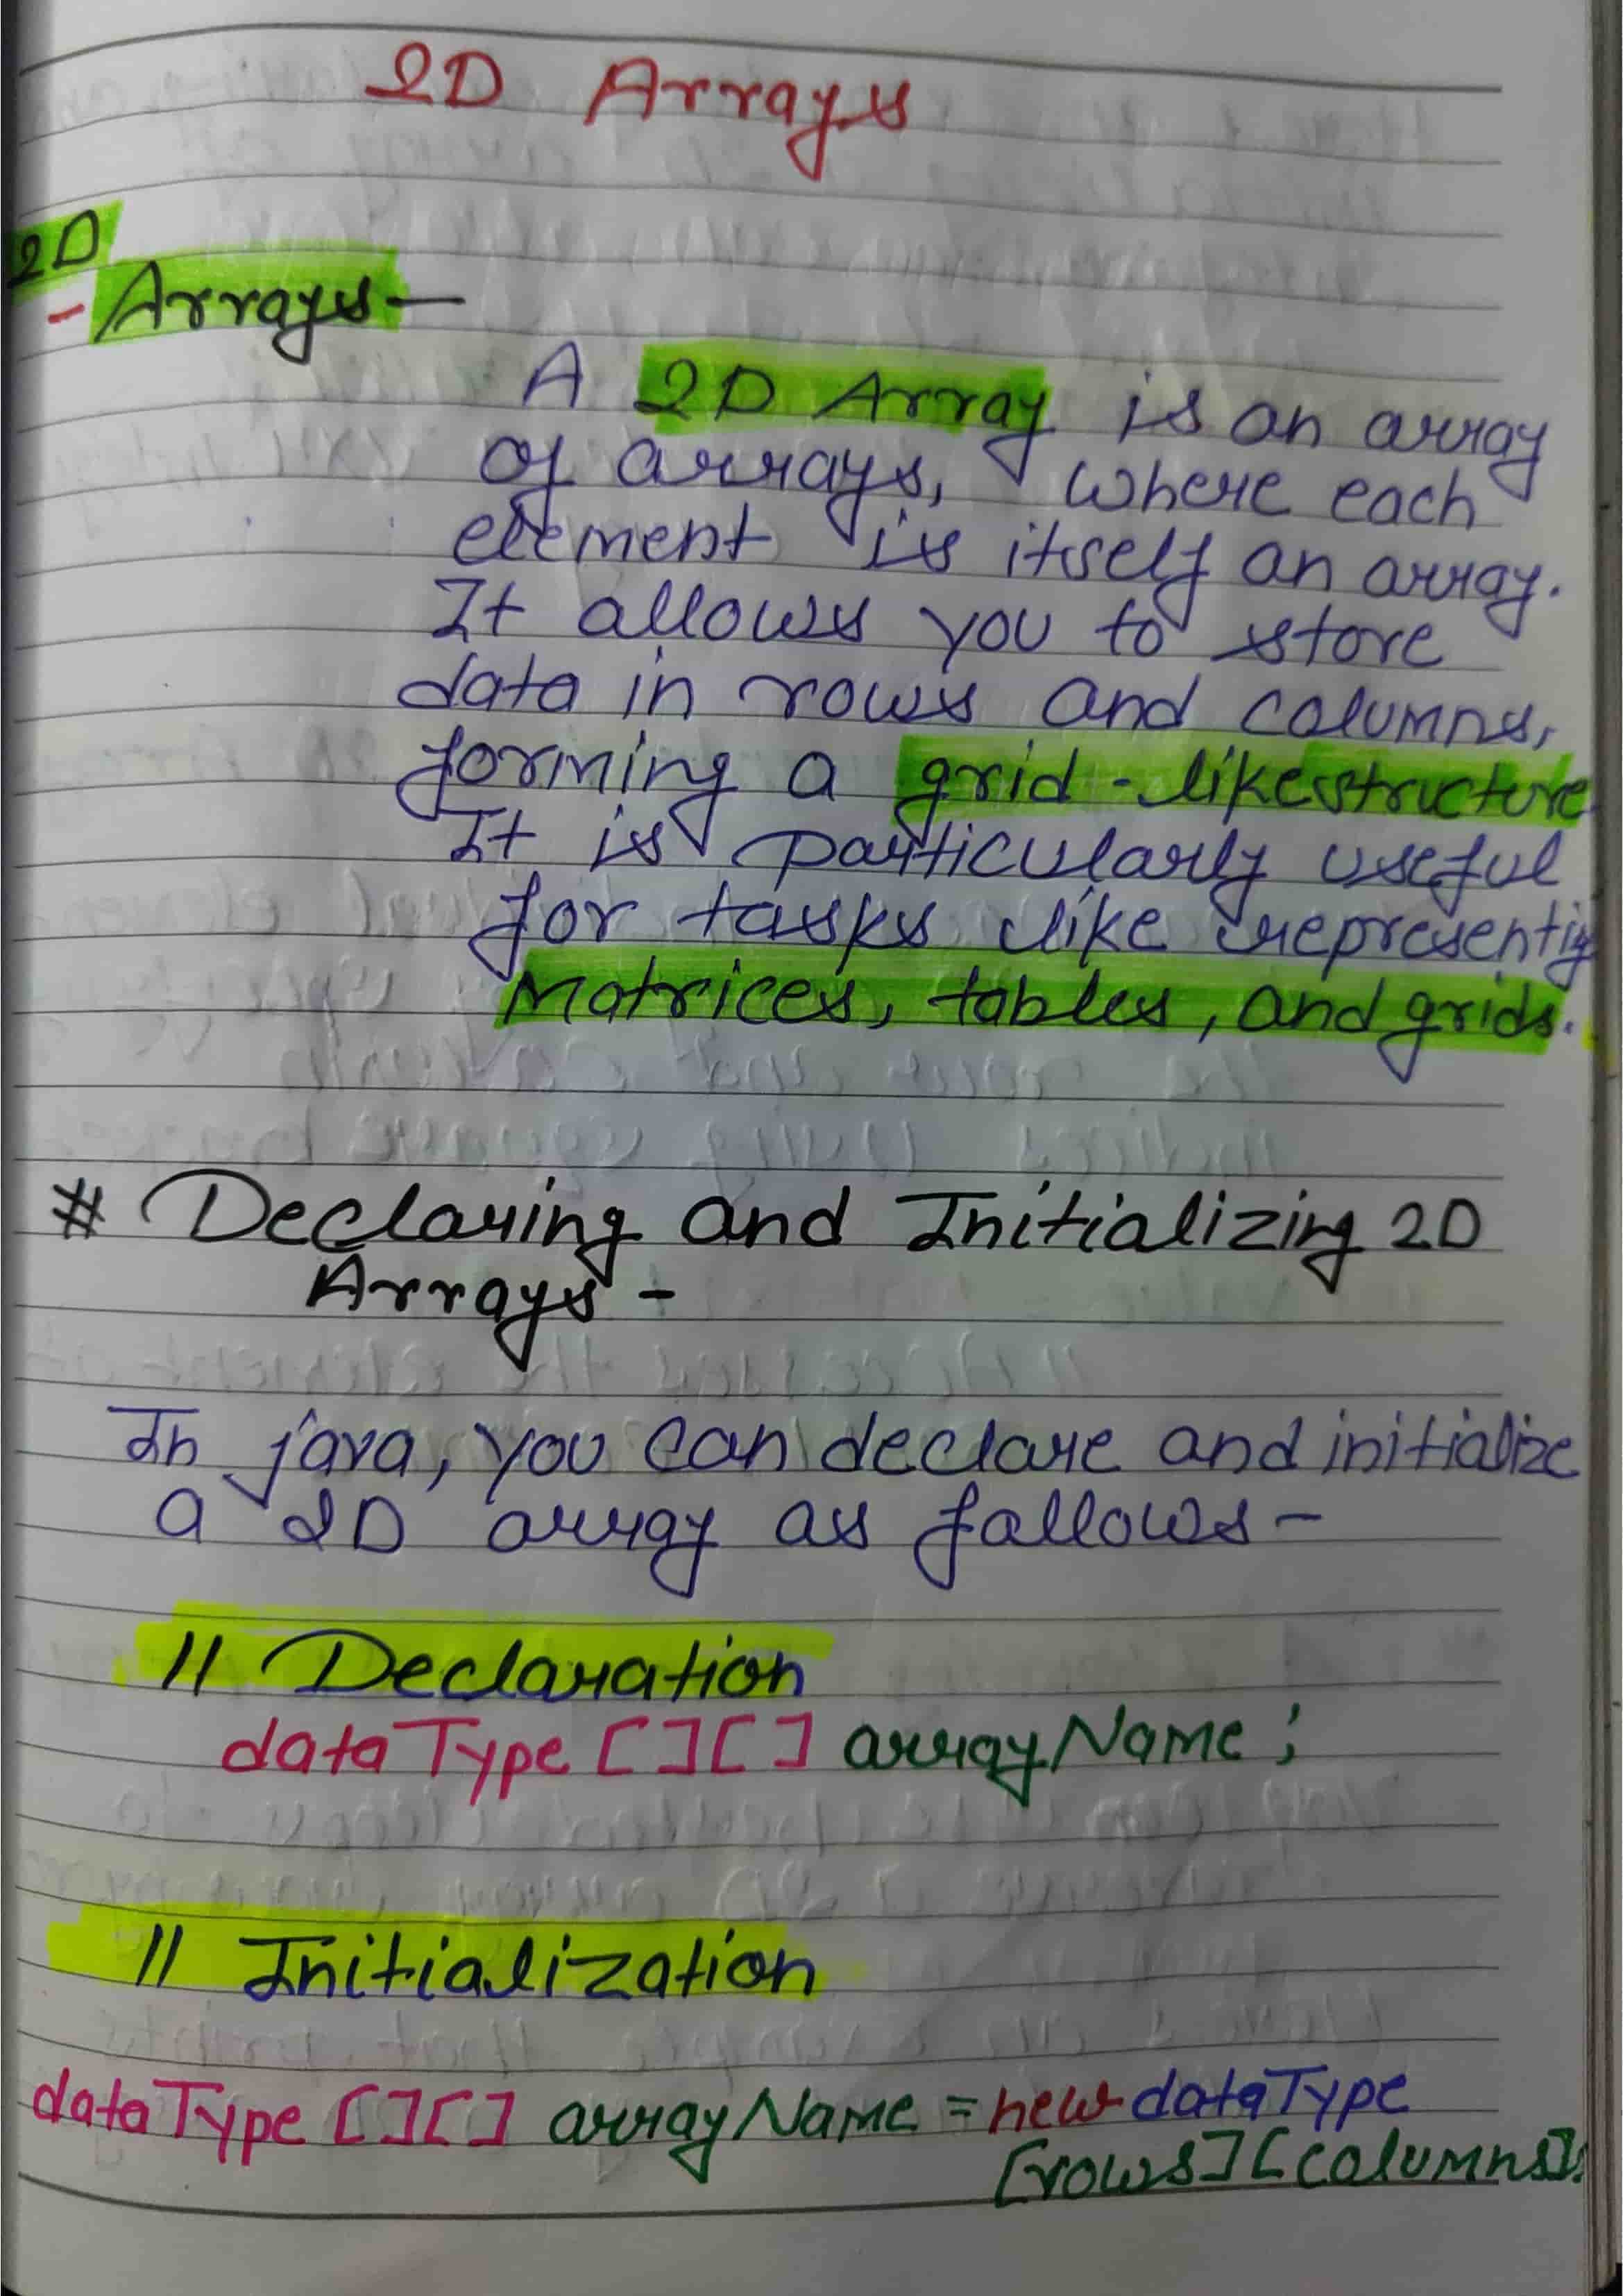 2D Arrays
2D
- Arrays -
A 2D Array is an array
of arrays, where each
element is itself an array.
It allows you to store
data in rows and columns,
forming a grid-like structure
It is particularly useful
for tasks like representing
Matrices, tables, and grids.
# Declaring and Initializing 2D
Arrays -
In java, you can declare and initialize
a 2D array as follows -
// Declaration
dataType [][] arrayName;
// Initialization
dataType [][] arrayName = new dataType
[rows][columns];